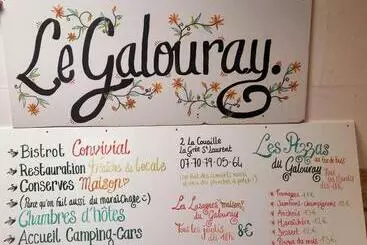 Le Galouray.
Bistrot Convivial
Restauration Fraîche & Locale
Conserves Maison
(Parce qu'on fait aussi du maraîchage :)
Chambres d'hôtes
Accueil Camping-Cars
2 La Couaille
La Grée St Laurent
07-70-79-05-64
Les Lasagnes "maison"
du Galouray
Tous les jeudis 8€
dès 18h
Les Pizzas au feu de bois
du Galouray
Tous les
dès 18h
Fromages
Jambon-champignons 12€
Anchois
Dessert du